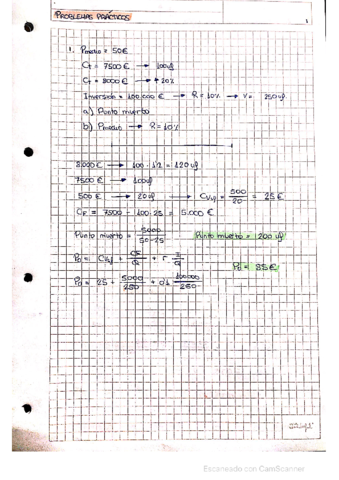 PROBLEMAS PRÁCTICOS
1
1. Pmedio = 50€
Ct = 7500€ → 100uf
Ct = 8000€ → +20%
Inversión = 100.000€ → R = 10% → V = 250uf
a) Punto muerto
b) Pmedio → R = 10%
8.000€ → 100 · 1'2 = 120 uf
7500€ → 100uf
500€ → 20uf → CVuf = 500/20 = 25€
CF = 7500 - 100·25 = 5.000€
Punto muerto = 5000/50-25 Punto muerto = 200 uf
Pd = CVuf + CF/Q + r I/Q
Pd = 85€
Pd = 25 + 5000/250 + 0'1 100.000/250
Escaneado con CamScanner